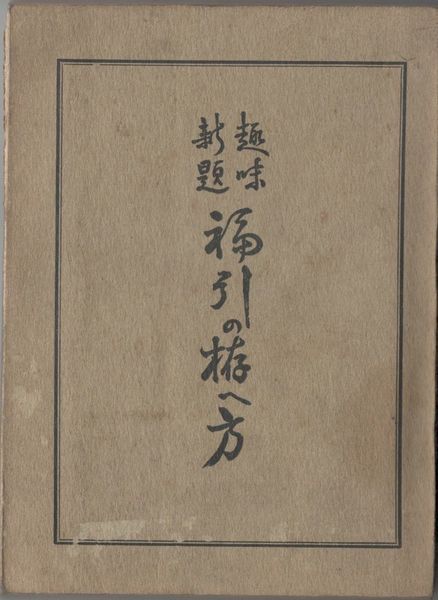 趣味
新題
福引の拵へ方